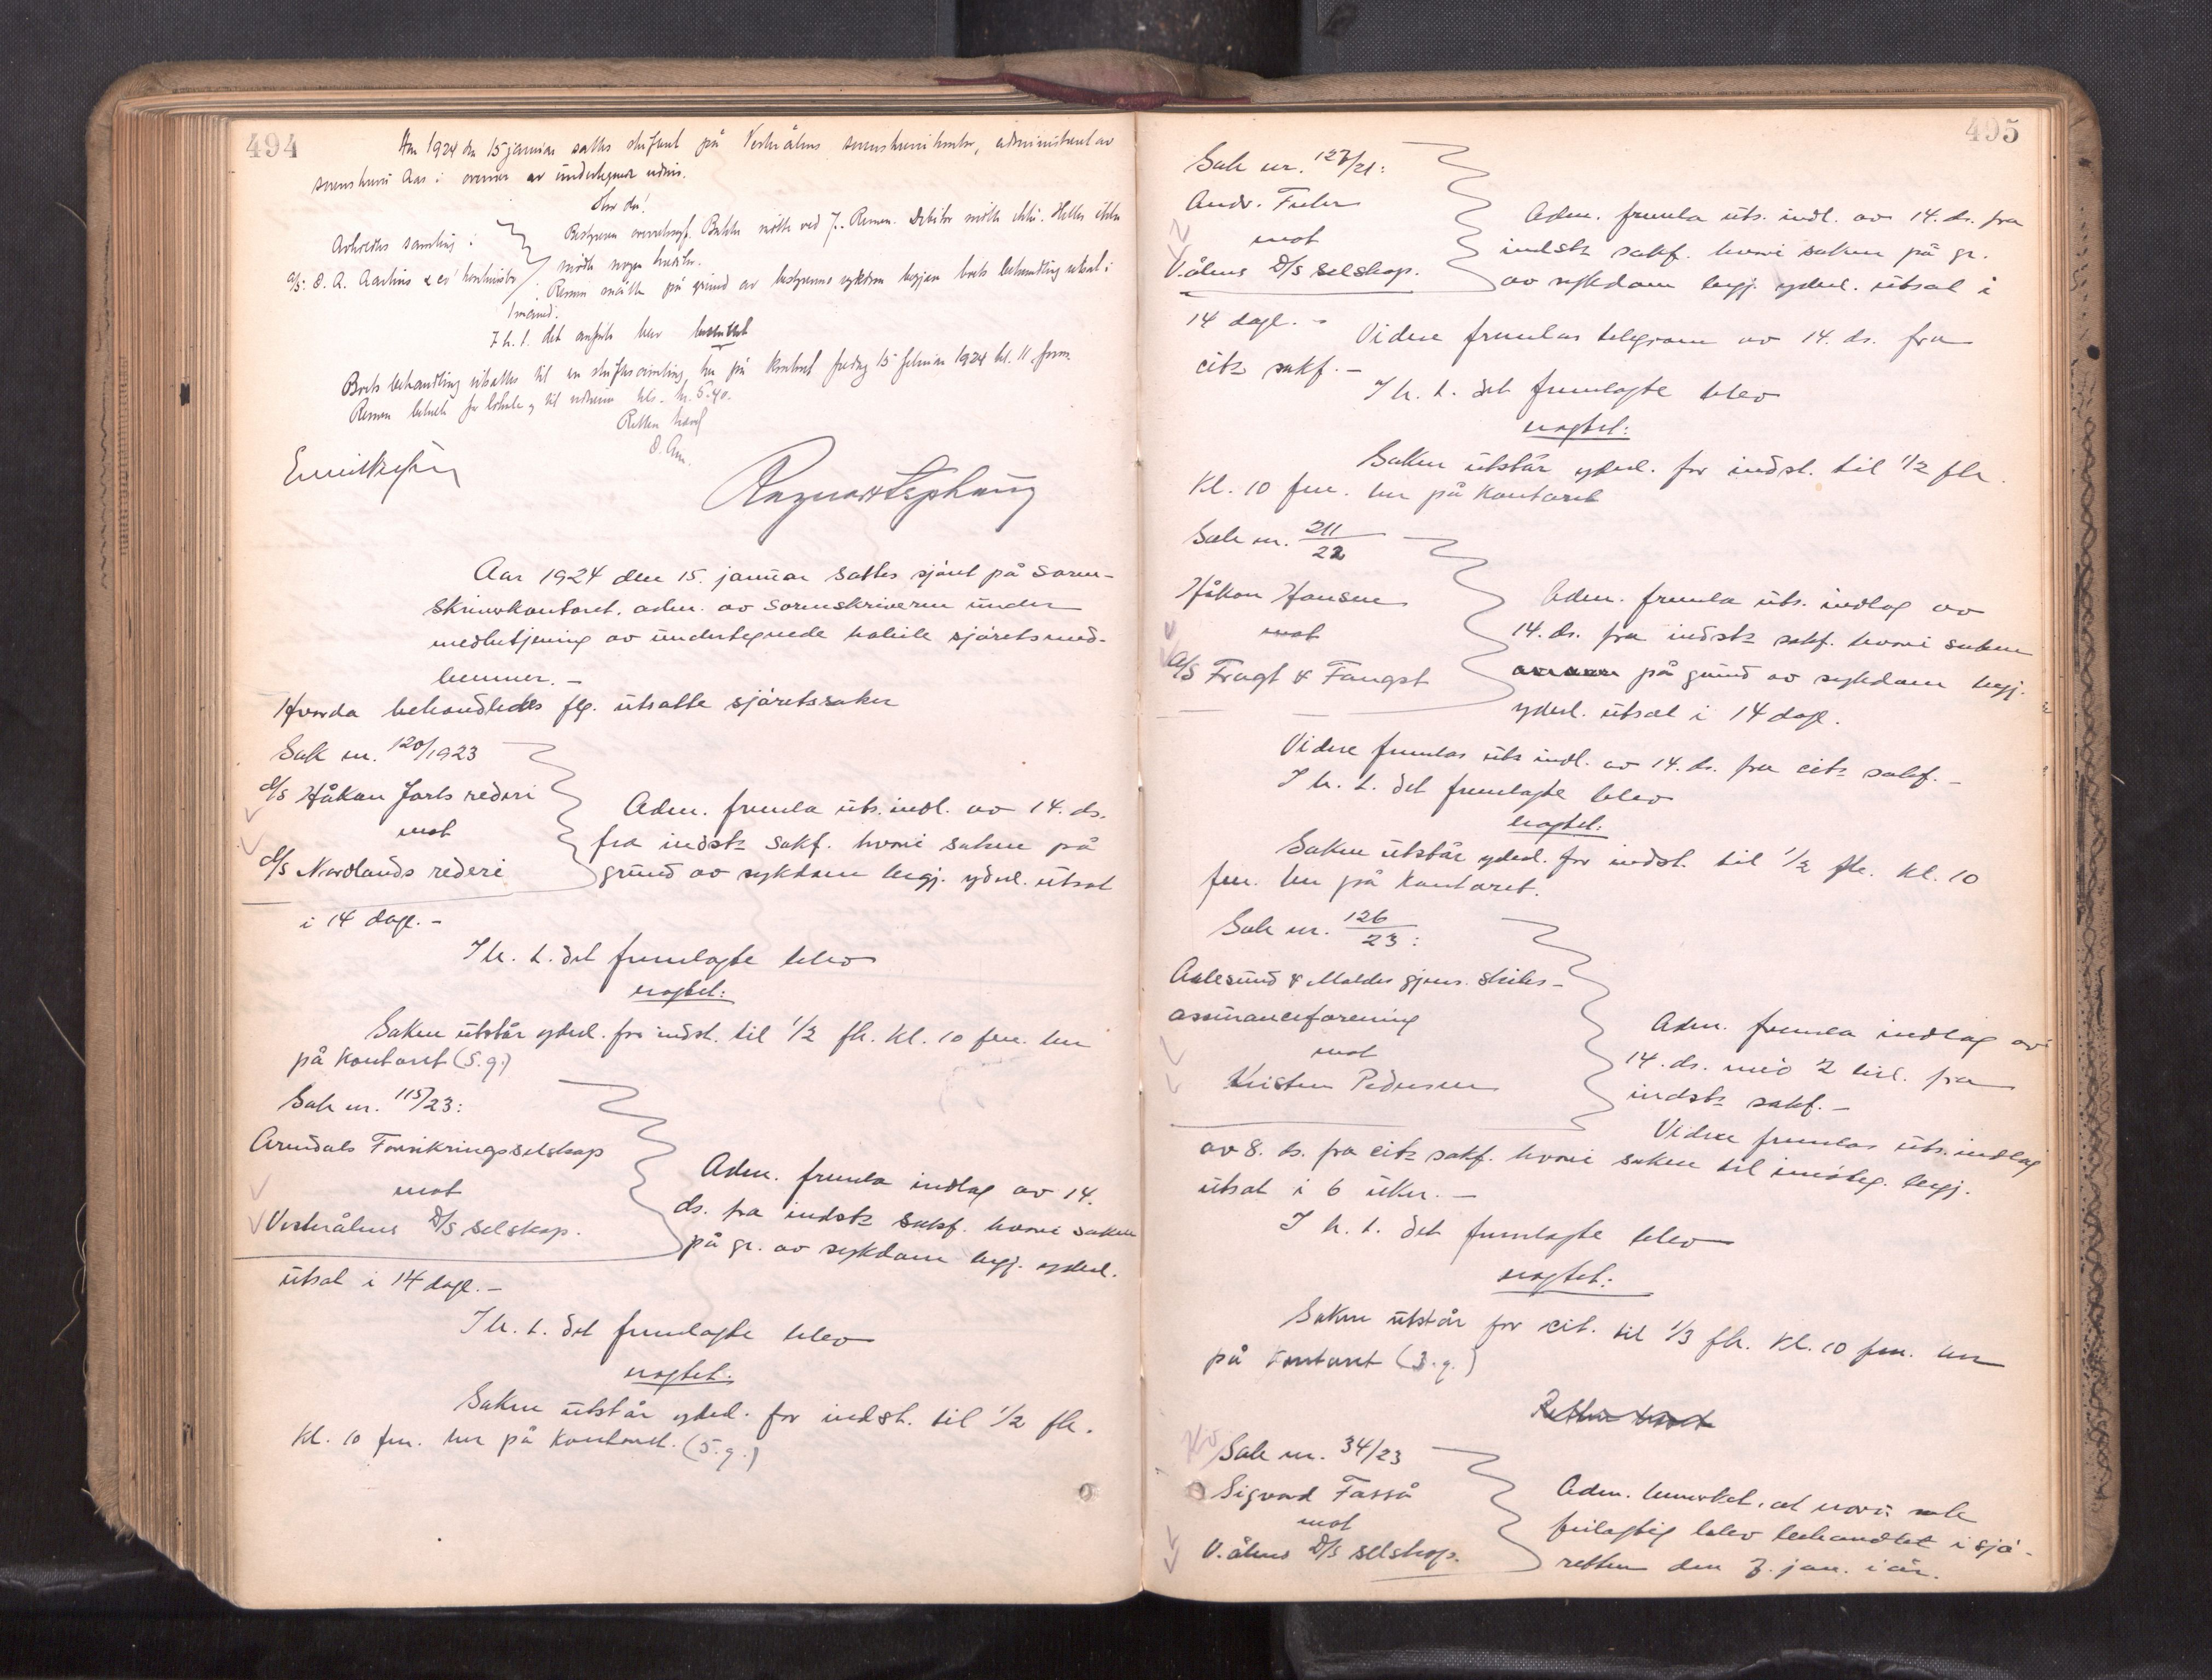 494
Aar 1924 den 15 januar sattes skifteret på Vesterålens sorenskriverkontor, administrert av
sorenskriver Aas i overvær av undertegnede vidner.
Hvor da!
Avholdtes samling i
a/s: O. A. Aarhus & co' konkursbo
Bestyreren overretssakf. Bakke møtte ved J. Remen. Debitor møtte ikke. Heller ikke
møtte nogen kreditor.
Remen møtte på grund av bestyrerens sykdom begjær boets behandling utsat i
1 maaned.
I h. t. det anførte blev besluttet
Boets behandling utsattes til en skiftesamling her på kontoret fredag 15 februar 1924 kl. 11 form.
Remen betalte for lokale og til vidnerne tils. kr. 5.40.
Retten hævet
O. Aas.
Ragnar Stephansen
Aar 1924 den 15. januar sattes sjøret på Soren-
skriverkontoret, adm. av sorenskriveren under
medbetjening av undertegnede habile sjøretsmed-
lemmer. -
Hvorda behandledes flg. utsatte sjøretssaker
Sak nr. 120/1923
d/s Håkon Jarls rederi
mot
d/s Nordlands rederi
Adm. fremla uts. indl. av 14. ds.
fra indstz sakf. hvori saken på
grund av sykdom begj. yderl. utsat
i 14 dage. -
I h. t. det fremlagte blev
vogtet:
Saken utstår yderl. for indst. til 1/2 fk. kl. 10 fm. her
på kontoret (5. g.)
Sak nr. 115/23:
Arendals Forsikringsselskap
mot
Vesterålens D/S selskap.
Adm. fremla indlag av 14.
ds. fra indstz sakf. hvori saken
på gr. av sykdom begj. yderl.
utsat i 14 dage. -
I h. t. det fremlagte blev
vogtet:
Saken utstår yderl. for indst. til 1/2 fk.
kl. 10 fm. her på kontoret. (5. g.)
495
Sak nr. 127/21:
Andr. Fuhr
mot
V.ålens D/S selskap.
Adm. fremla uts. indl. av 14. ds. fra
indstz sakf. hvori saken på gr.
av sykdom begj. yderl. utsat i
14 dage. -
Videre fremlas telegram av 14. ds. fra
citz sakf. -
I h. t. det fremlagte blev
vogtet:
Saken utstår yderl. for indst. til 1/2 fk.
kl. 10 fm. her på kontoret
Sak nr. 211/22
Håkon Hansen
mot
A/S Fragt & Fangst
Adm. fremla uts. indlag av
14. ds. fra indstz sakf. hvori saken
på grund av sykdom begj.
yderl. utsat i 14 dage.
Videre fremlas uts indl. av 14. ds. fra citz sakf. -
I h. t. det fremlagte blev
vogtet:
Saken utstår yderl. for indst. til 1/2 fk. kl. 10
fm. her på kontoret.
Sak nr. 126/23:
Aalesund & Moldes gjens. skibs-
assuranceforening
mot
Kristen Pedersen
Adm. fremla indlag av
14. ds. med 2 bil. fra
indstz sakf. -
Videre fremlas uts. indlag
av 8. ds. fra citz sakf. hvori saken til imøteg. begj.
utsat i 6 uker. -
I h. t. det fremlagte blev
vogtet:
Saken utstår for cit. til 1/3 fk. kl. 10 fm. her
på kontoret (3. g.)
Retten hævet
Sak nr. 34/23
Sigvard Fasså
mot
V.ålens D/S selskap.
Adm. bemerket, at nærv. sak
feilagtig blev behandlet i sjø-
retten den 7. jan. i år.